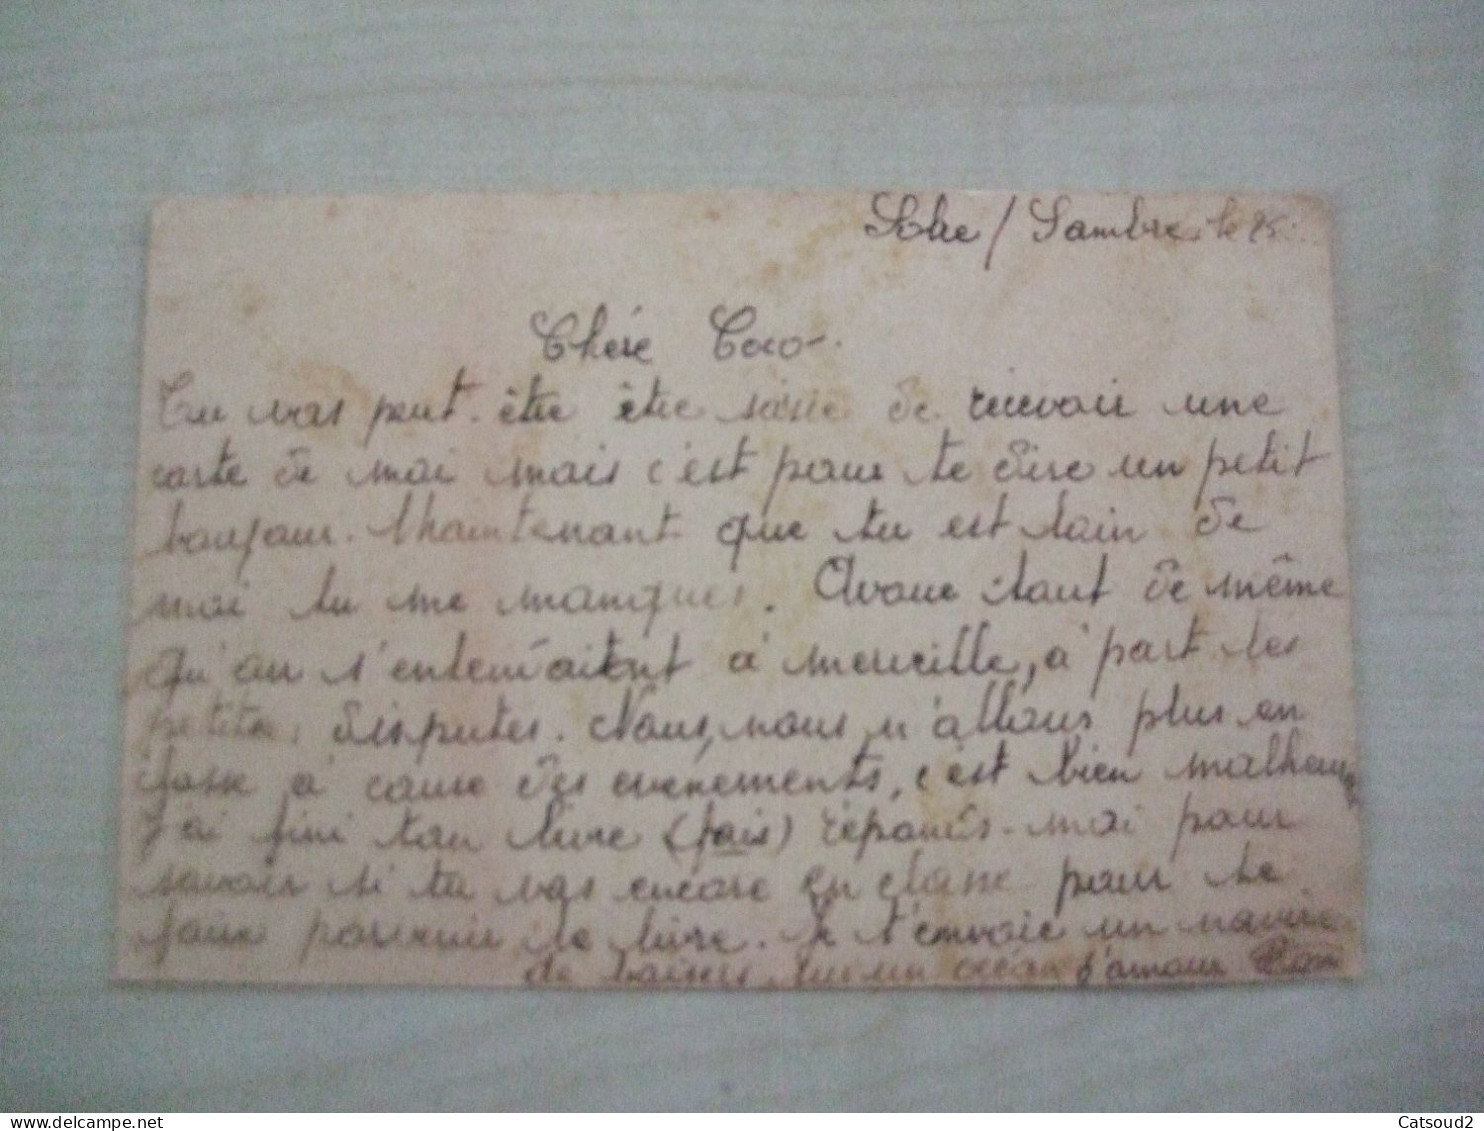 Solre / Sambre, le 25
Chére Coco.
Tu vas peut-être être saisie de recevoir une
carte de moi mais c'est pour te dire un petit
bonjour. Maintenant que tu est loin de
moi tu me manques. Avoue tout de même
qu'on s'entendaitent à merveille, à part les
petites disputes. Nous, nous n'allons plus en
classe à cause des événements, c'est bien malheureux
J'ai fini ton livre (fais) réponds-moi pour
savoir si tu vas encore en classe pour te
faire parvenir le livre. Je t'envoie un navire
de baisers, sur un océan d'amour
Catsoud2